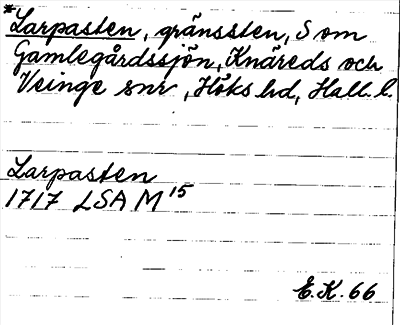 *Larpasten, gränssten, S om
Gamlegårdssjön, Knäreds och
Veinge snr, Höks hd, Hall. l.
Larpasten
1717 LSA M 15
E.K. 66